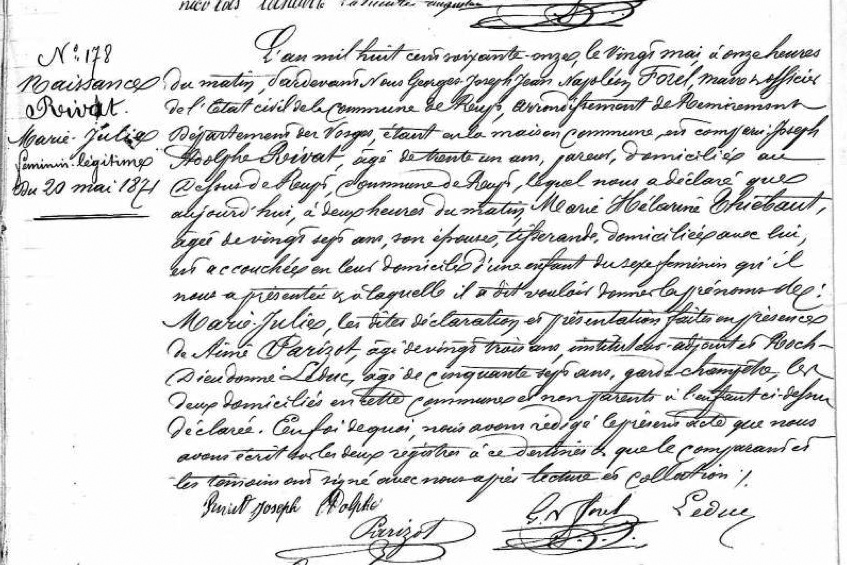 Nicolas
N° 178
Naissance
Rivat.
Marie-Julie
féminin-légitime
Du 20 mai 1871
L'an mil huit cent soixante-onze, le vingt mai, à onze heures
du matin, pardevant Nous Georges-Joseph Jean Napoléon Forel, maire & officier
de l'Etat civil de la commune de Rupt, arrondissement de Remiremont
Département des Vosges, étant en la maison commune, est comparu Joseph
Adolphe Rivat, âgé de trente un ans, pareur, domicilié au
Dessus de Rupt, commune de Rupt, lequel nous a déclaré que
aujourd'hui, à deux heures du matin, Marie Thiébaut,
âgée de vingt sept ans, son épouse, tisserande, domiciliée avec lui,
est accouchée en leur domicile d'une enfant du sexe féminin qu'il
nous a présentée & à laquelle il a dit vouloir donner les prénoms de:
Marie-Julie, les dites déclaration et présentation faites en présence
de Aimé Parizot, âgé de vingt trois ans, instituteur-adjoint et Roch-
Dieudonné Leduc, âgé de cinquante sept ans, garde-champêtre, les
deux domiciliés en cette commune et non parents à l'enfant ci-dessus
déclarée. En foi de quoi, nous avons rédigé le présent acte que nous
avons écrit sur les deux registres à ce destinés & que le comparant et
les témoins ont signé avec nous après lecture et collation /.
Joseph Adolphe
Parizot
G. N Forel
Leduc